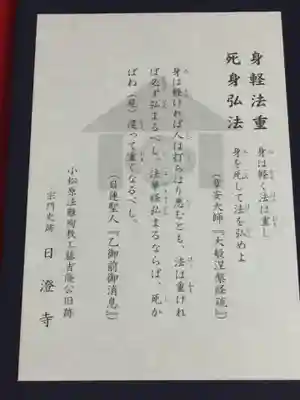 身軽法重 身は軽く法は重し
死身弘法 身を死して法を弘めよ
(章安大師『大般涅槃経疏』)
身は軽ければ人は打ちはり悪むとも、法は重けれ
ば必ず弘まるべし。法華経弘まるならば、死か
ばね(屍)還って重くなるべし。
(日蓮聖人『乙御前御消息』)
小松原法難殉教工藤吉隆公旧跡
宗門史跡 日澄寺